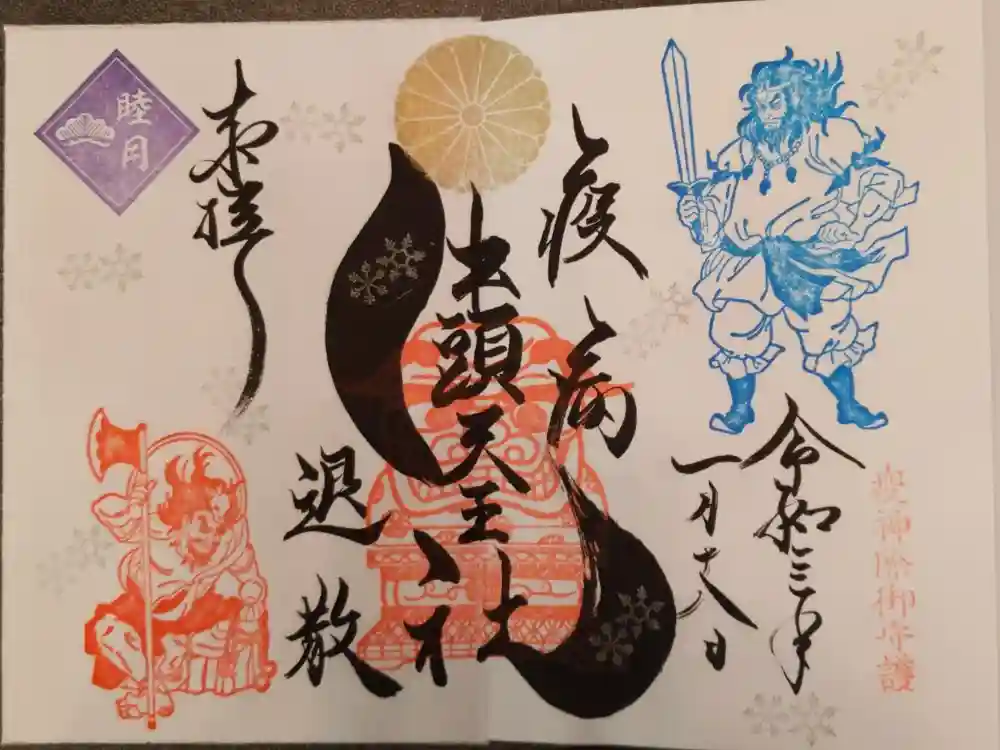 令和三年
一月十八日
疫病
退散
牛頭天王社
奉拝
睦月
御守護